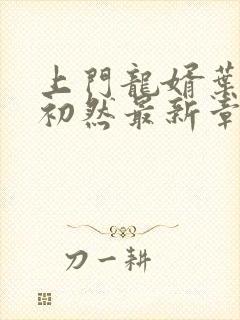 上門龍婿葉
初然最新章
刀一耕